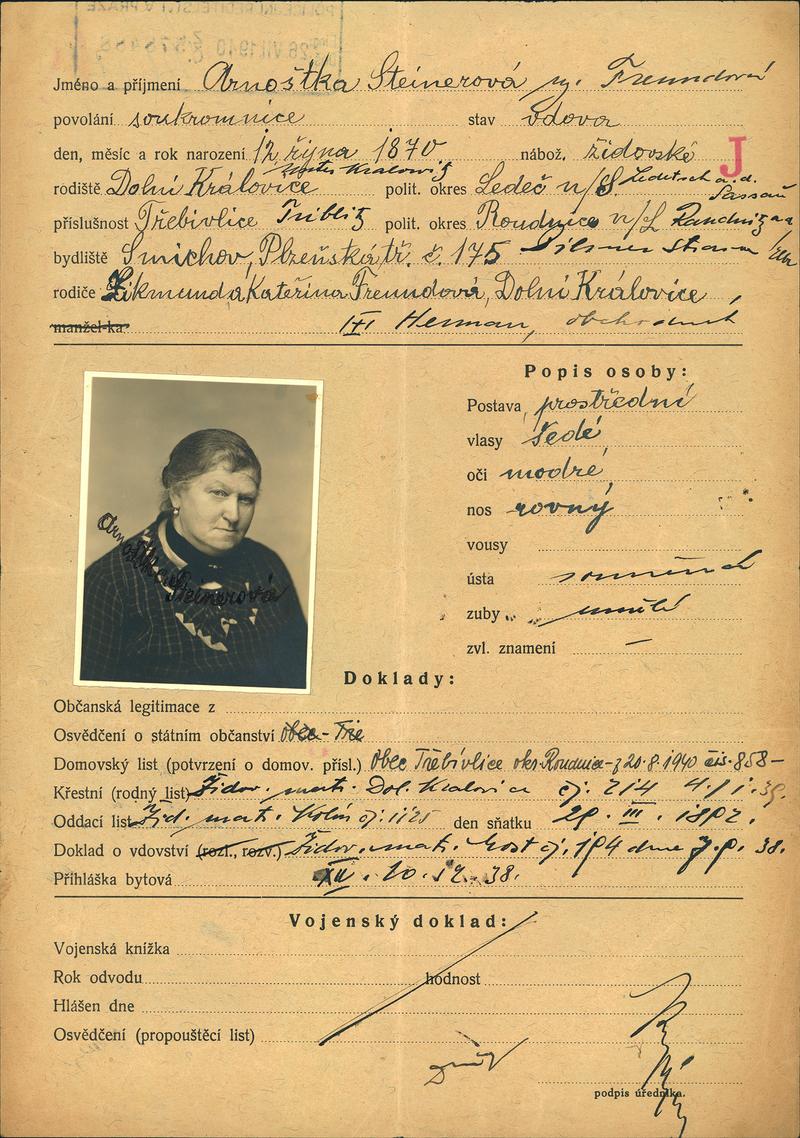 26 VII. 1940
Jméno a příjmení Arnoštka Steinerová roz. Freundová
povolání soukromnice stav vdova
den, měsíc a rok narození 12. října 1870 nábož. židovské J
Unter Kralovitz
rodiště Dolní Královice polit. okres Ledeč n/S. Ledetsch a. d. Sassau
příslušnost Třebivlice Triblitz polit. okres Roudnice n/L Raudnitz a a
bydliště Smichov, Plzeňská tř. č. 175 Pilsner Strasse
rodiče Zikmund a Kateřina Freundová, Dolní Královice
manžel-ka Herman, obchodník
Popis osoby:
Postava prostřední
vlasy šedé
oči modré
nos rovný
vousy
ústa souměrná
zuby umělé
zvl. znamení —
Arnoštka Steinerová
Doklady:
Občanská legitimace z
Osvědčení o státním občanství obec - Tře
Domovský list (potvrzení o domov. přísl.) Obec Třebívlice okr. Roudnice - z 20. 8. 1940 čís. 858 -
Křestní (rodný list) Židov. matr. Dol. Kralovice čj. 214 4./I. 39.
Oddací list Žid. matr. Kolín čj. 1125 den sňatku 29. III. 1892.
Doklad o vdovství (rozl., rozv.) Židov. matr. Most čj. 194 dne 7. 9. 38.
Přihláška bytová XII. 10. 12. 38.
Vojenský doklad:
Vojenská knížka
Rok odvodu hodnost
Hlášen dne
Osvědčení (propouštěcí list)
podpis úředníka.